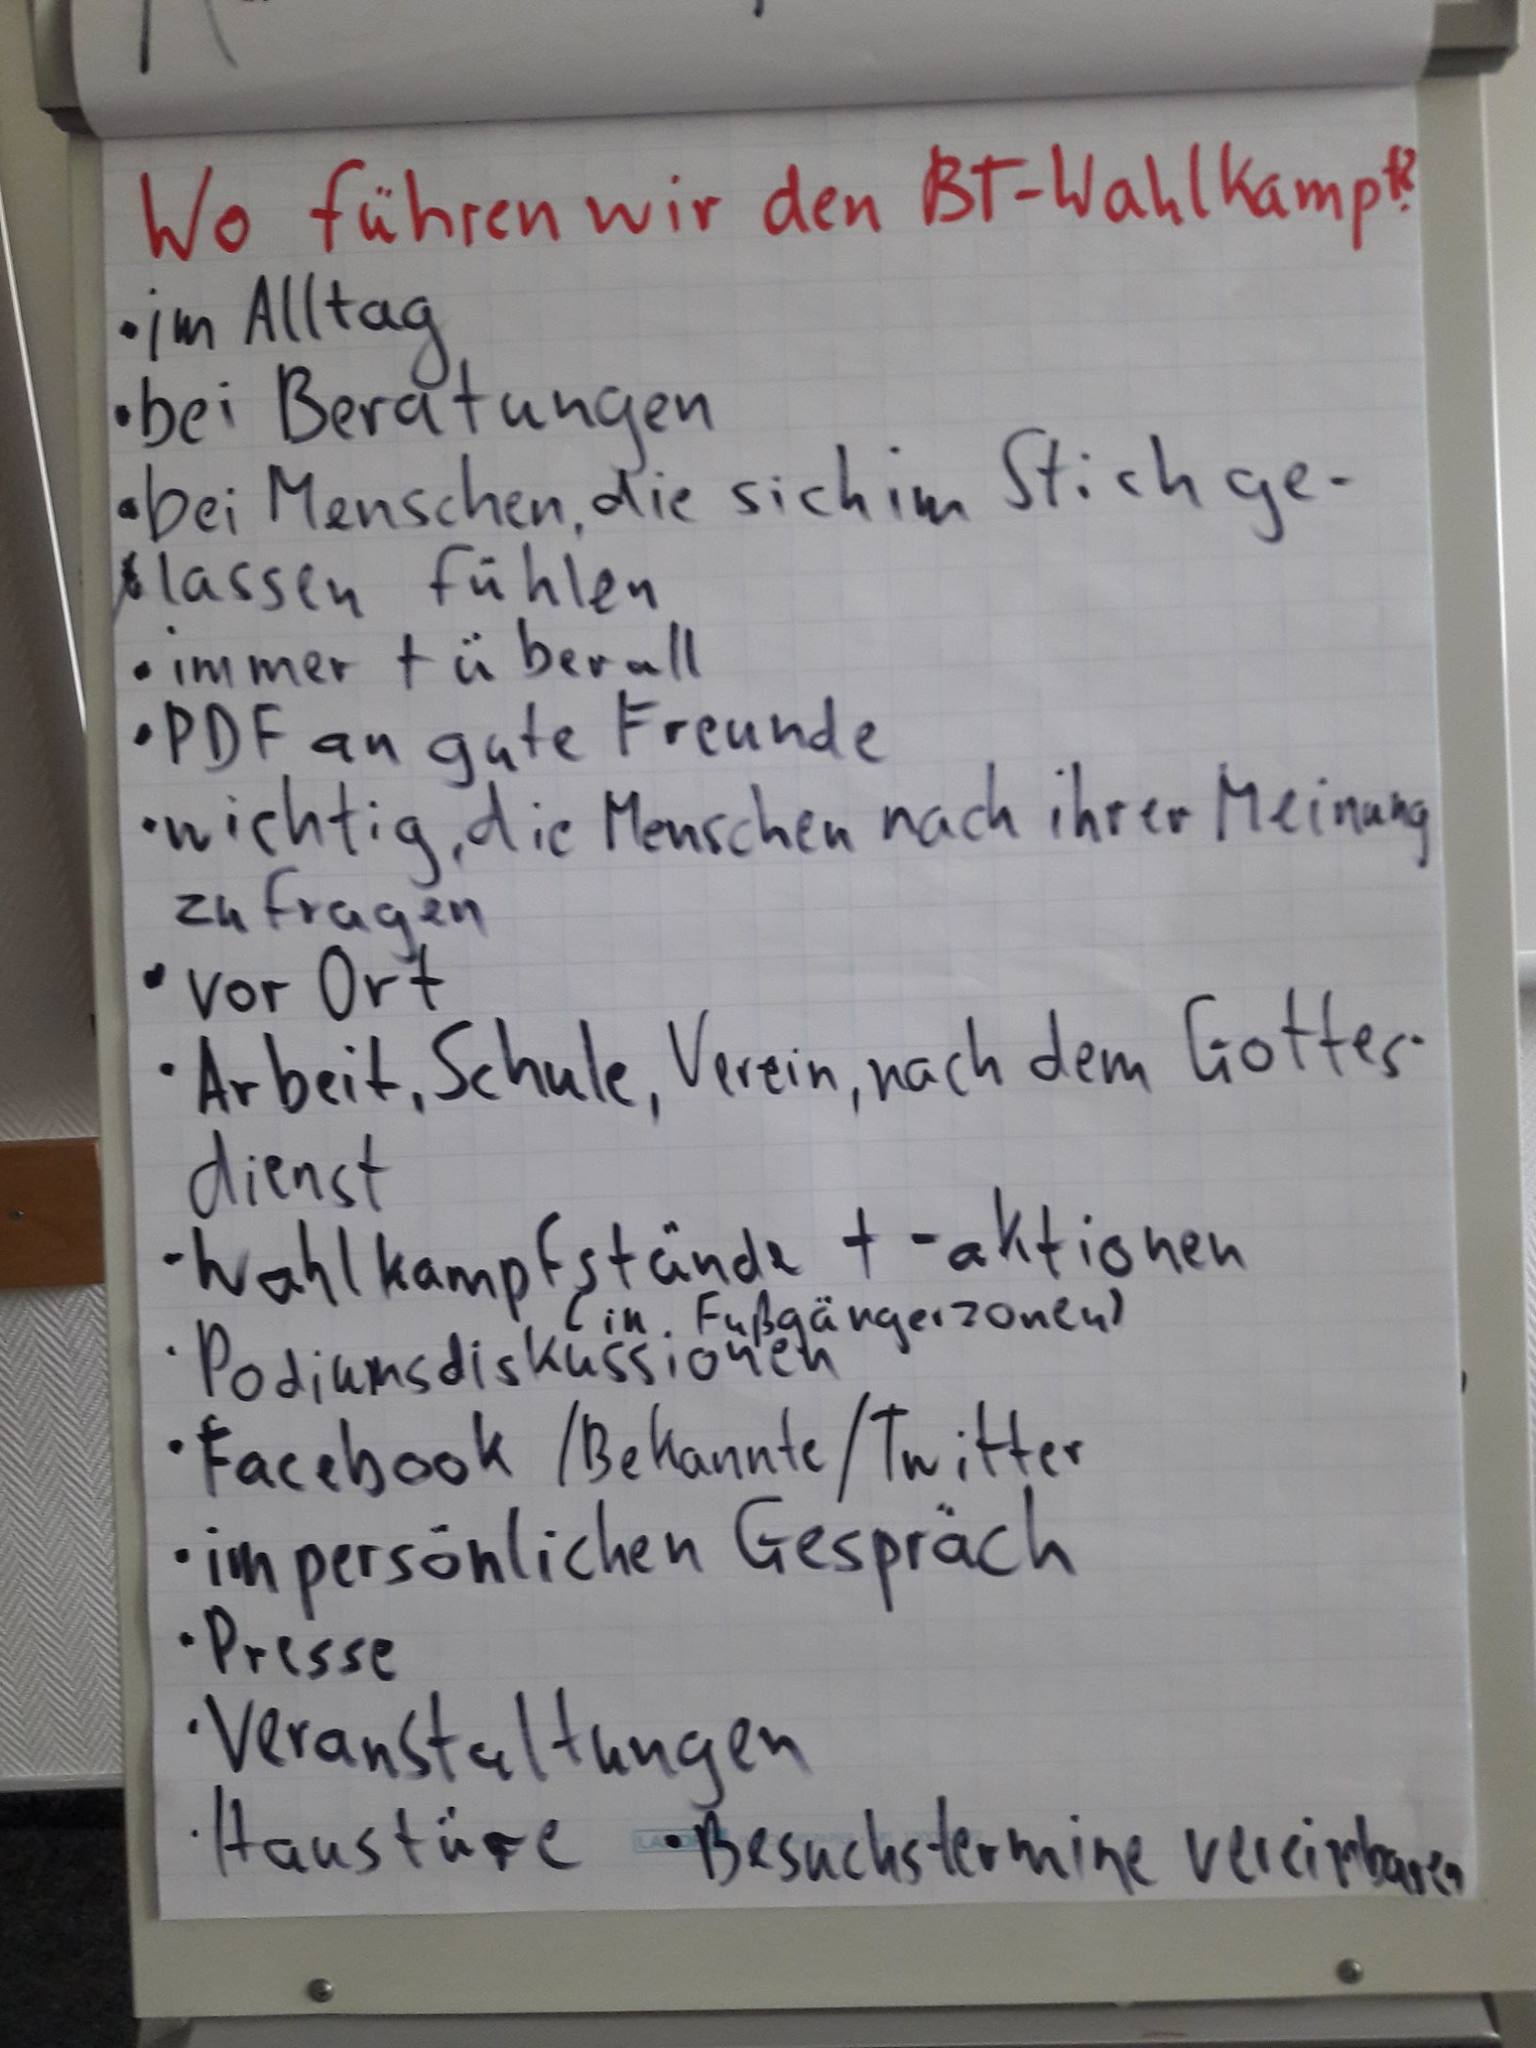 Wo führen wir den BT-Wahlkampf?
• im Alltag
• bei Beratungen
• bei Menschen, die sich im Stich ge-
lassen fühlen
• immer + überall
• PDF an gute Freunde
• wichtig, die Menschen nach ihrer Meinung
zu fragen
• vor Ort
• Arbeit, Schule, Verein, nach dem Gottes-
dienst
- Wahlkampfstände + -aktionen
(in Fußgängerzonen)
• Podiumsdiskussionen
• Facebook /Bekannte/Twitter
• im persönlichen Gespräch
• Presse
• Veranstaltungen
• Haustüre • Besuchstermine vereinbaren